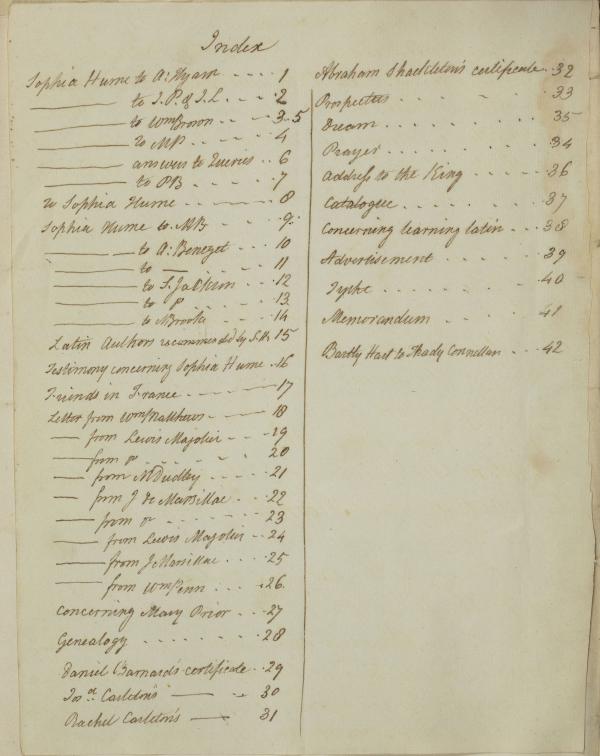 Index
Sophia Hume to A: Hyam - - - - 1
——— to J. P. & J. L. - - 2
——— to Wm Brown - - - 3..5
——— to MB - - - - 4
——— answers to Queries - - 6
——— to PB - - - - 7
to Sophia Hume - - - - 8
Sophia Hume to MB - - - 9
——— to A: Benezet - - - 10
——— to — - - - 11
——— to S. Jackson - - - 12
——— to - - - 13
——— to Brook - - - 14
Latin Authors recommended by S. H. 15
Testimony concerning Sophia Hume - 16
Friends in France - - - 17
Letter from Wm Matthews - - - 18
— from Lewis Majolier - - - 19
— from Do - - - - 20
— from M Dudley - - - - 21
— from J de Marsillac - - - 22
— from Do - - - - 23
— from Lewis Majolier - - 24
— from J Marsillac - - - 25
— from Wm Penn - - - 26
Concerning Mary Prior - - - 27
Genealogy - - - - - - 28
Daniel Barnard's certificate - - 29
Jos. Carleton's — - 30
Rachel Carleton's — 31
Abraham Shackleton's certificate - - 32
Prospectus - - - - 33
Dream - - - - - - 35
Prayer - - - - - - 34
Address to the King - - - - 36
Catalogue - - - - - 37
Concerning learning latin - - - 38
Advertisement - - - - 39
- - - - - - 40
Memorandum - - - - 41
Bartly Hart to Thady Connellan - - - 42